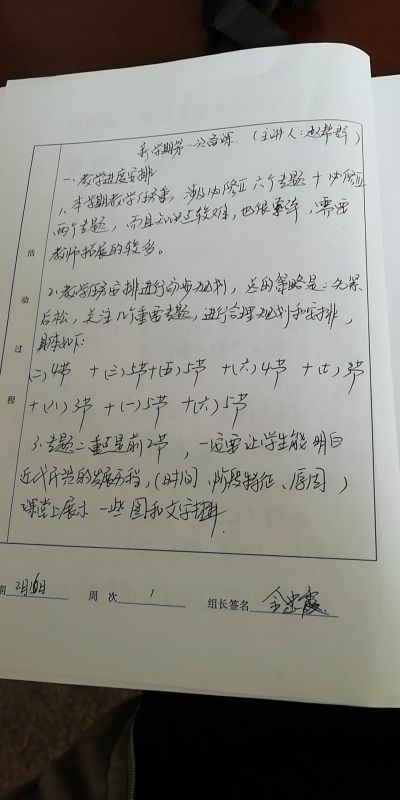 新学期第一次备课. (主讲人:赵帮群)
一、教学进度安排
1、本学期教学任务重, 涉及必修Ⅱ六个专题 + 必修Ⅲ
两个专题, 而且知识点较难, 也很零碎, 需要
教师拓展的较多。
2、教学任务安排进行初步规划, 总的策略是:先紧
后松, 关注几个重要专题, 进行合理规划和安排,
具体如下:
(二)4节 +(三)5节+(五)5节 +(六)4节 +(七)3节
+(八)3节 +(一)5节 +(六)5节
3、专题二重点是前2节, 一定要让学生能明白
近代 的发展历程, (时间、阶段特征、原因)
课堂上展示一些图和文字材料.
活动过程
期 2月16日 周 次 1 组长签名 余忠霞